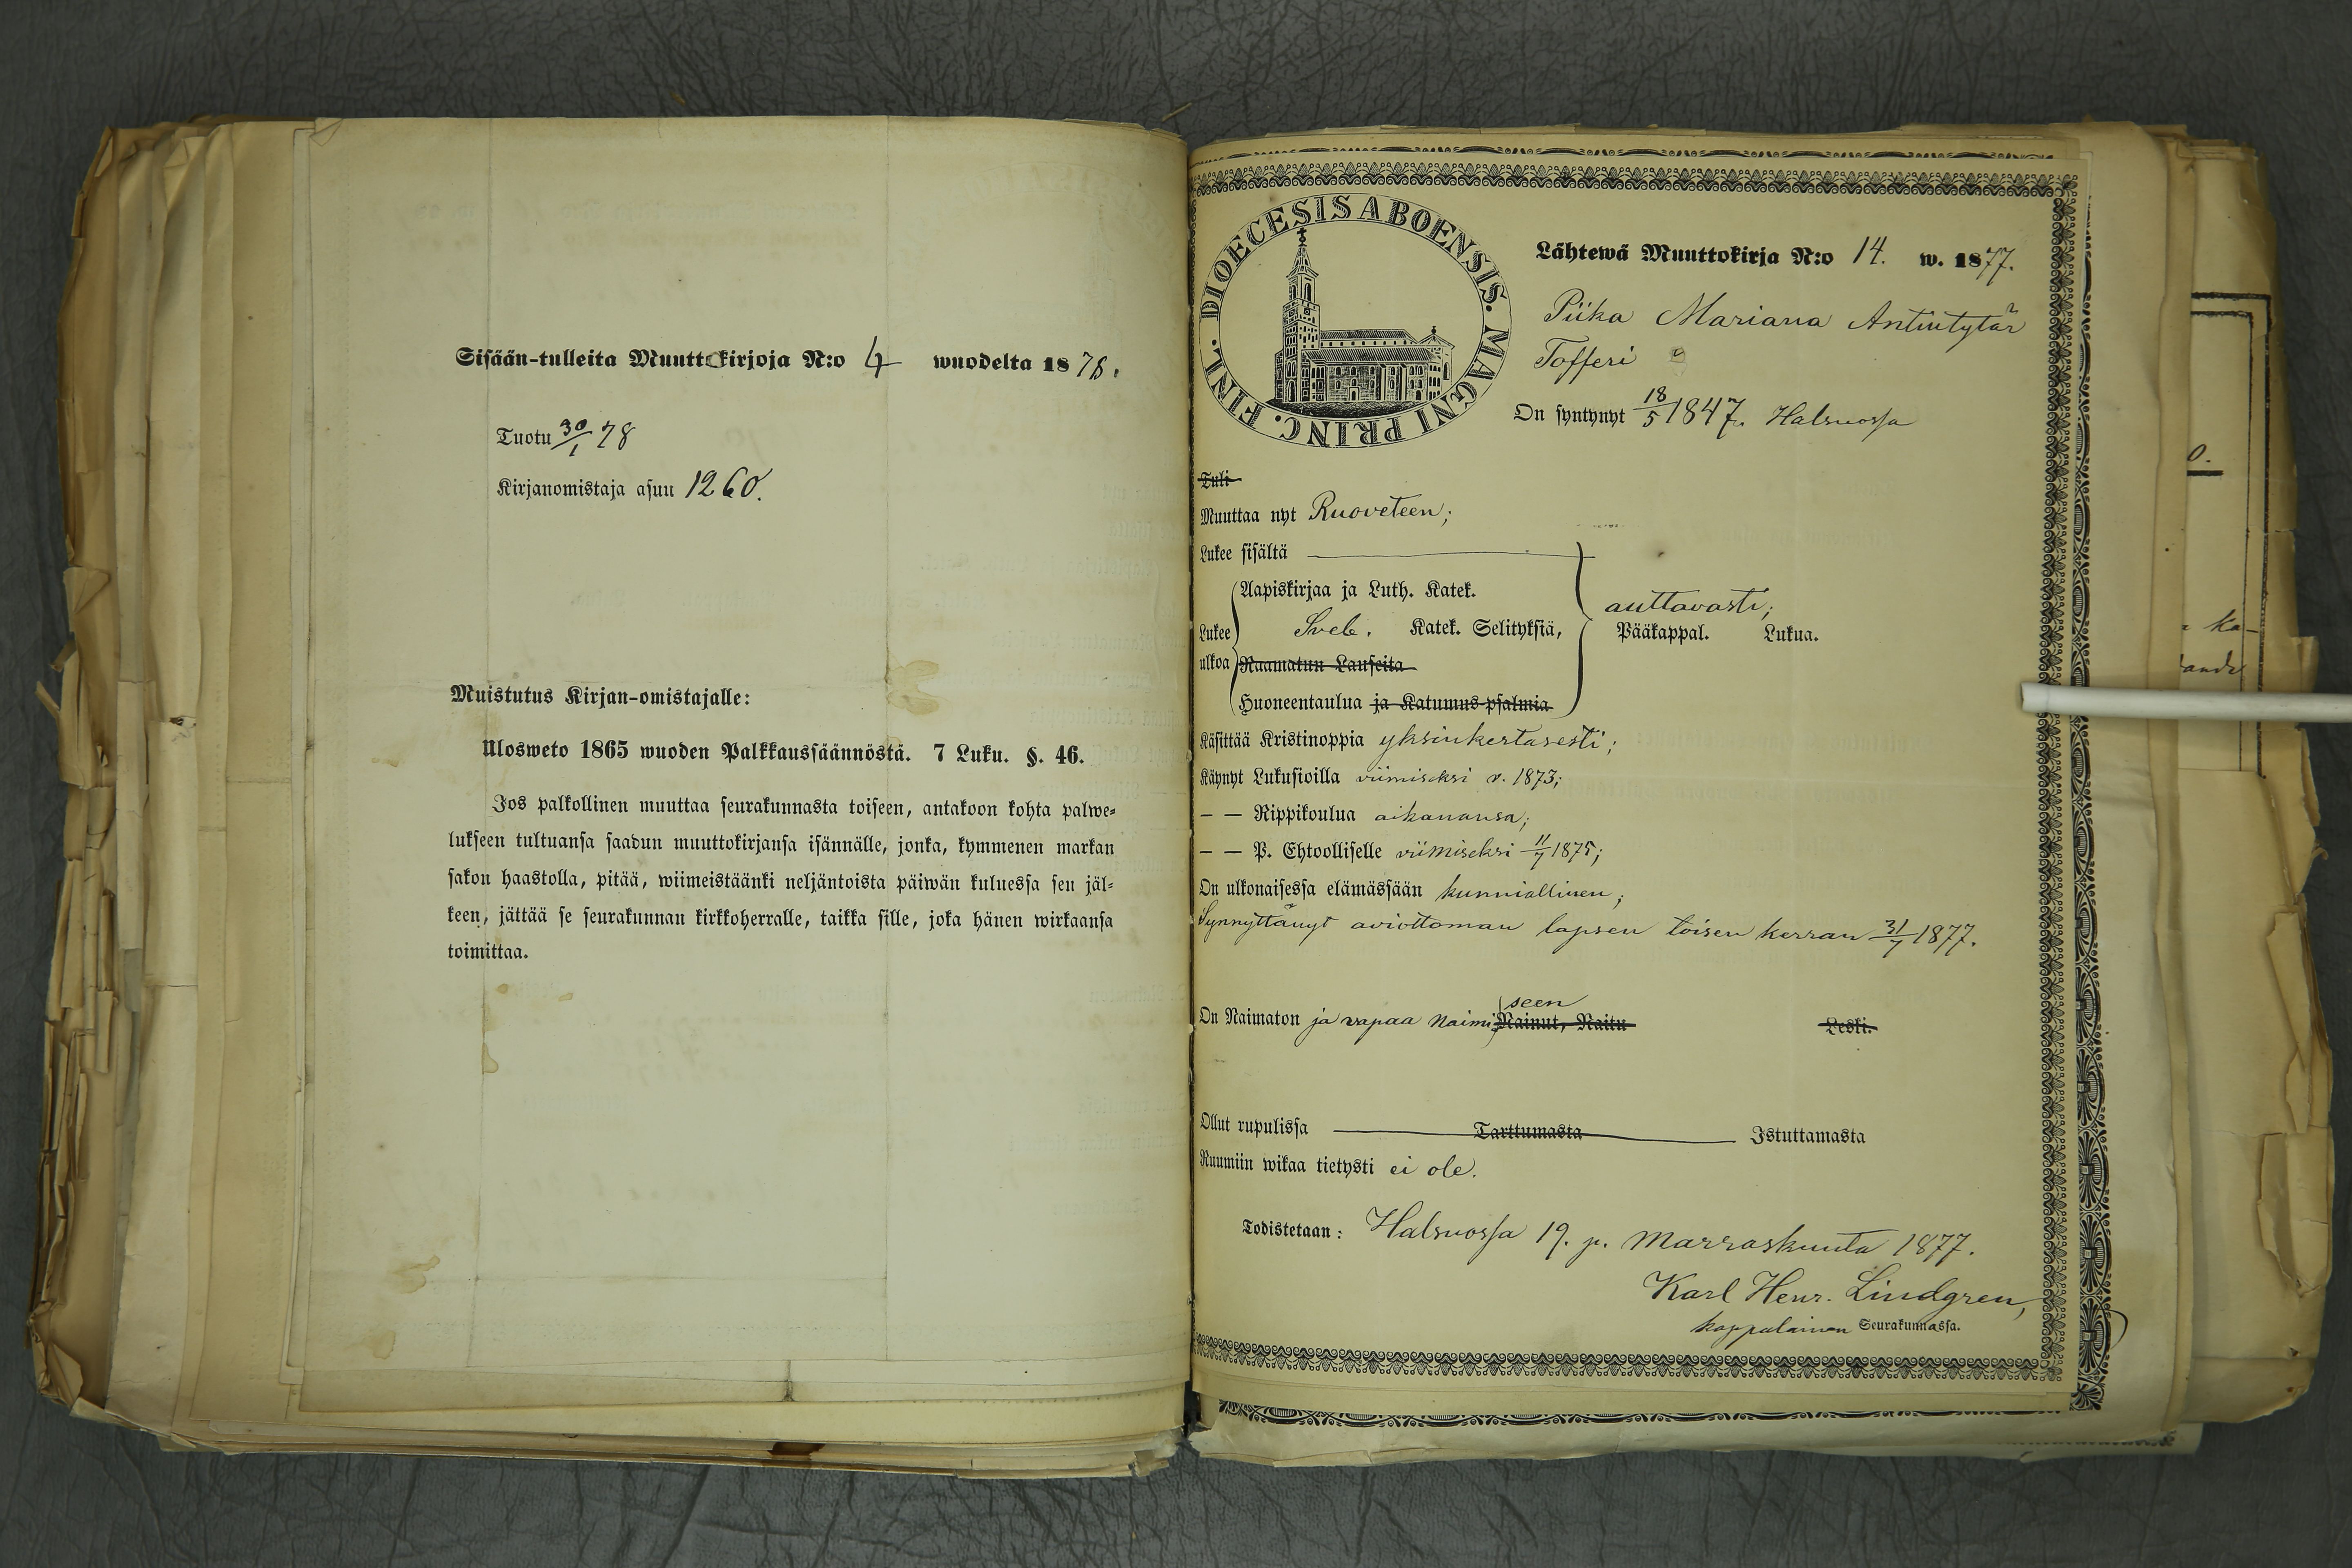 Sisään-tulleita Muuttokirjoja N:o 4 wuodelta 1878.
Tuotu 30/1 78
Kirjanomistaja asuu 1260.
Muistutus Kirjan-omistajalle:
Ulosweto 1865 wuoden Palkkaussäännöstä. 7 Luku. §. 46.
Jos palkollinen muuttaa seurakunnasta toiseen, antakoon kohta palwe-
lukseen tultuansa saadun muuttokirjansa isännälle, jonka, kymmenen markan
sakon haastolla, pitää, wiimeistäänki neljäntoista päiwän kuluessa sen jäl-
keen, jättää se seurakunnan kirkkoherralle, taikka sille, joka hänen wirkaansa
toimittaa.
DIOECESIS ABOENSIS. MAGNI PRINC. FINL.
Lähtewä Muuttokirja N:o 14. w. 1877.
Piika Mariana Antintytär
Tofferi
On syntynyt 18/5 1847. Halsuossa
Tuli
Muuttaa nyt Ruoveteen;
Lukee sisältä
Lukee ulkoa
Aapiskirjaa ja Luth. Katek.
Sveb. Katek. Selityksiä,
Raamatun Lauseita
Huoneentaulua ja Katumus-psalmia
auttavasti;
Pääkappal. Lukua.
Käsittää Kristinoppia yksinkertasesti;
Käynyt Lukusioilla viimiseksi v. 1873;
— — Rippikoulua aikanansa;
— — P. Ehtoolliselle viimiseksi 11/7 1875;
On ulkonaisessa elämässään kunniallinen;
Synnyttänyt aviottoman lapsen toisen kerran 31/7 1877.
seen
On Naimaton ja vapaa Naimi Nainut, Naitu Leski.
Ollut rupulissa Tarttumasta Istuttamasta
Ruumiin wikaa tietysti ei ole.
Todistetaan: Halsuossa 19. p. Marraskuuta 1877.
Karl Henr. Lindgren,
kappalainen Seurakunnassa.
0.
ka-